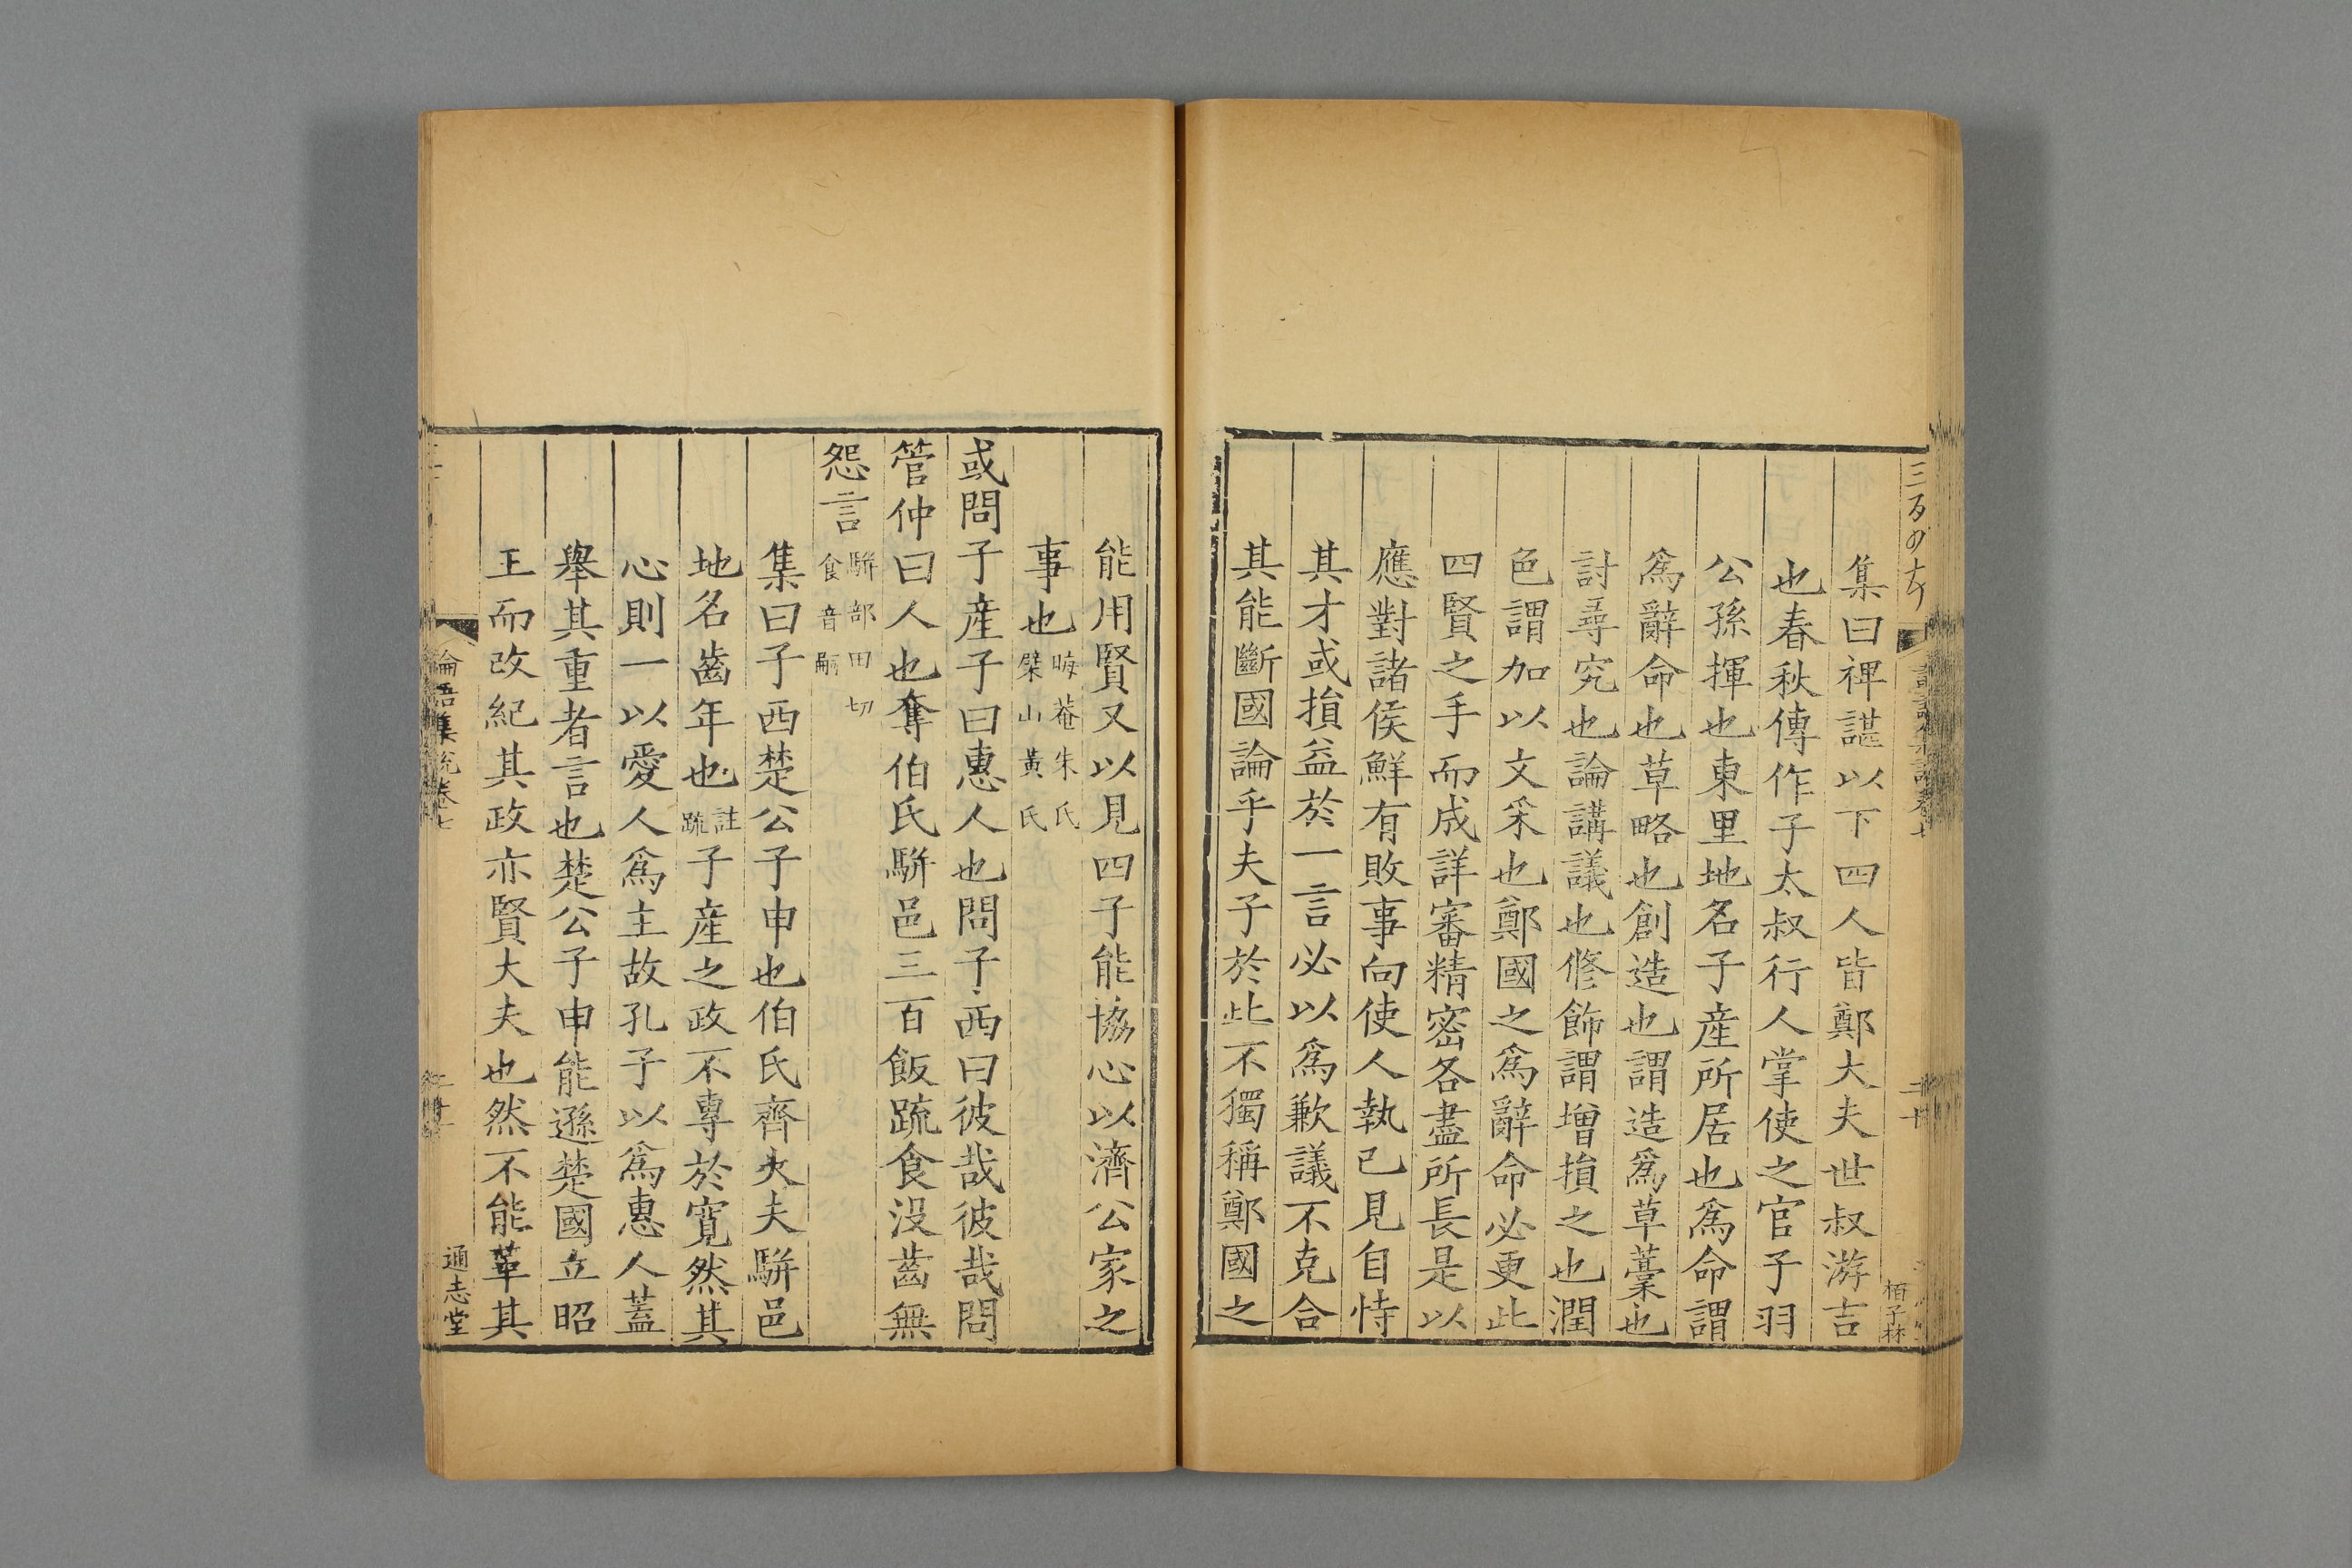 集曰禆諶以下四人皆鄭大夫世叔游吉
也春秋傳作子太叔行人掌使之官子羽
公孫揮也東里地名子產所居也爲命謂
爲辭命也草略也創造也謂造爲草藳也
討尋究也論講議也修飾謂增損之也潤
色謂加以文采也鄭國之爲辭命必更此
四賢之手而成詳審精密各盡所長是以
應對諸侯鮮有敗事向使人執已見自恃
其才或損益於一言必以爲歉議不克合
其能斷國論乎夫子於此不獨稱鄭國之
能用賢又以見四子能協心以濟公家之
事也晦菴朱氏檗山黃氏
或問子產子曰惠人也問子西曰彼哉彼哉問
管仲曰人也奪伯氏駢邑三百飯疏食没齒無
怨言駢部田切食音嗣
集曰子西楚公子申也伯氏齊大夫駢邑
地名齒年也註疏子產之政不專於寬然其
心則一以愛人爲主故孔子以爲惠人蓋
舉其重者言也楚公子申能遜楚國立昭
王而改紀其政亦賢大夫也然不能革其
論語集說卷七
通志堂